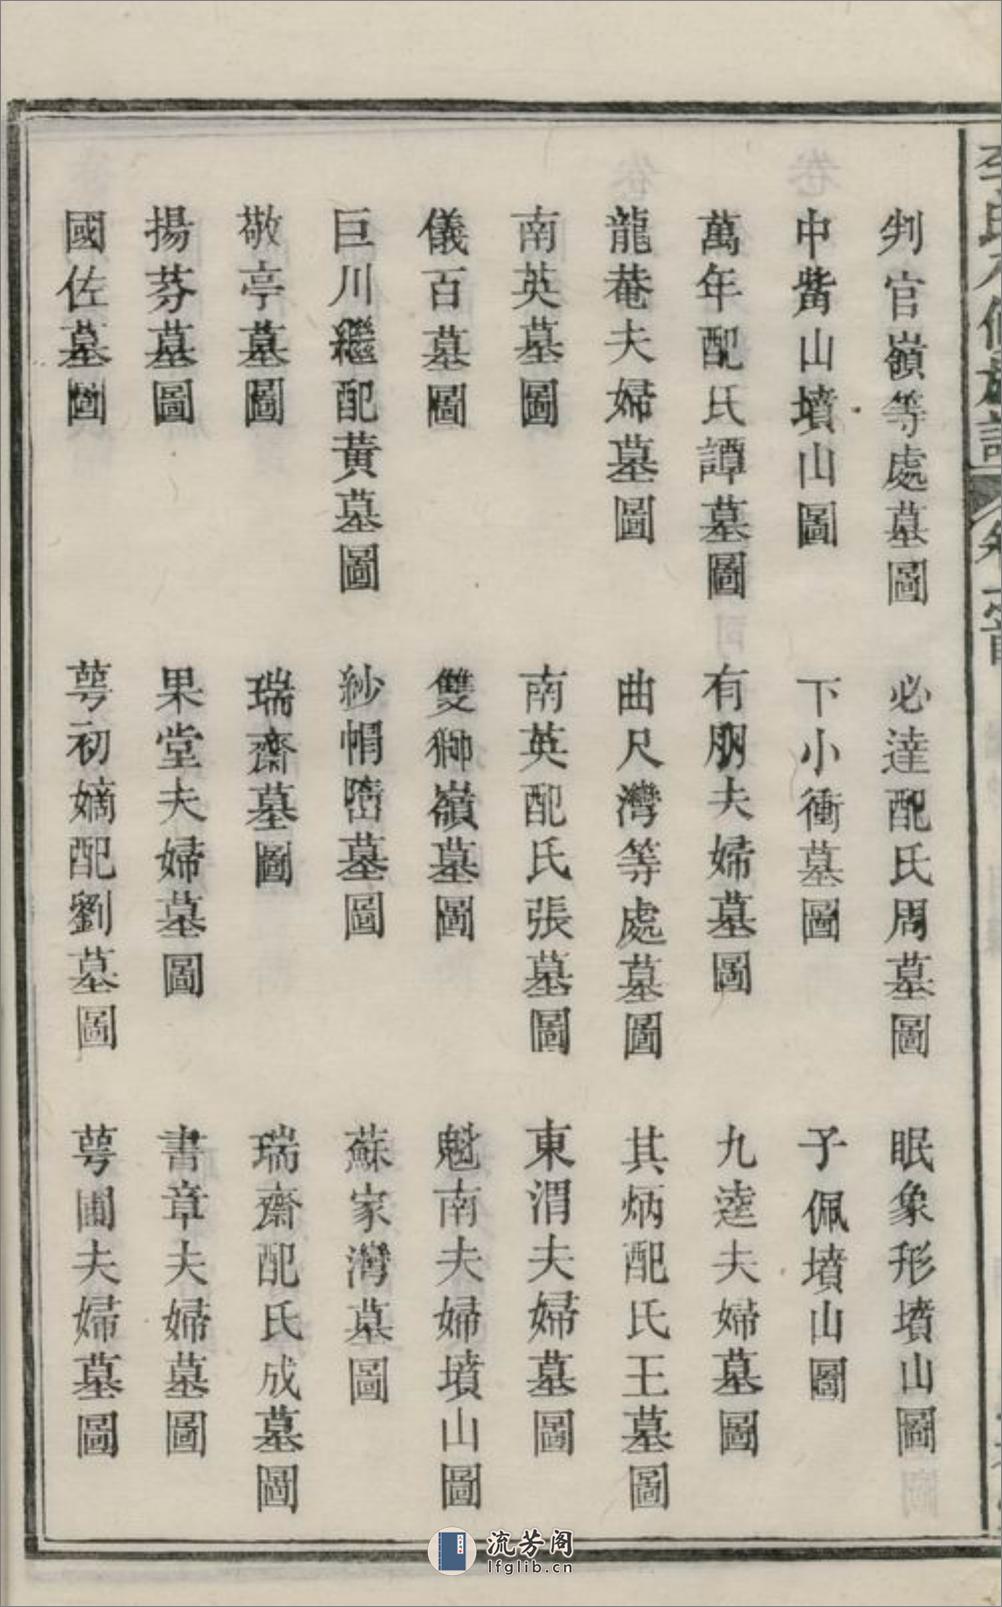 判官嶺等處墓圖 必達配氏周墓圖 眠象形墳山圖
中觜山墳山圖 下小衝墓圖 予佩墳山圖
萬年配氏譚墓圖 有朋夫婦墓圖 九逵夫婦墓圖
龍菴夫婦墓圖 曲尺灣等處墓圖 其炳配氏王墓圖
南英墓圖 南英配氏張墓圖 東渭夫婦墓圖
儀百墓圖 雙獅嶺墓圖 魁南夫婦墳山圖
巨川繼配黃墓圖 紗帽 墓圖 蘇家灣墓圖
敬亭墓圖 瑞齋墓圖 瑞齋配氏成墓圖
揚芬墓圖 果堂夫婦墓圖 書章夫婦墓圖
國佐墓圖 萼初嫡配劉墓圖 萼圃夫婦墓圖
流芳阁
lfglib.cn